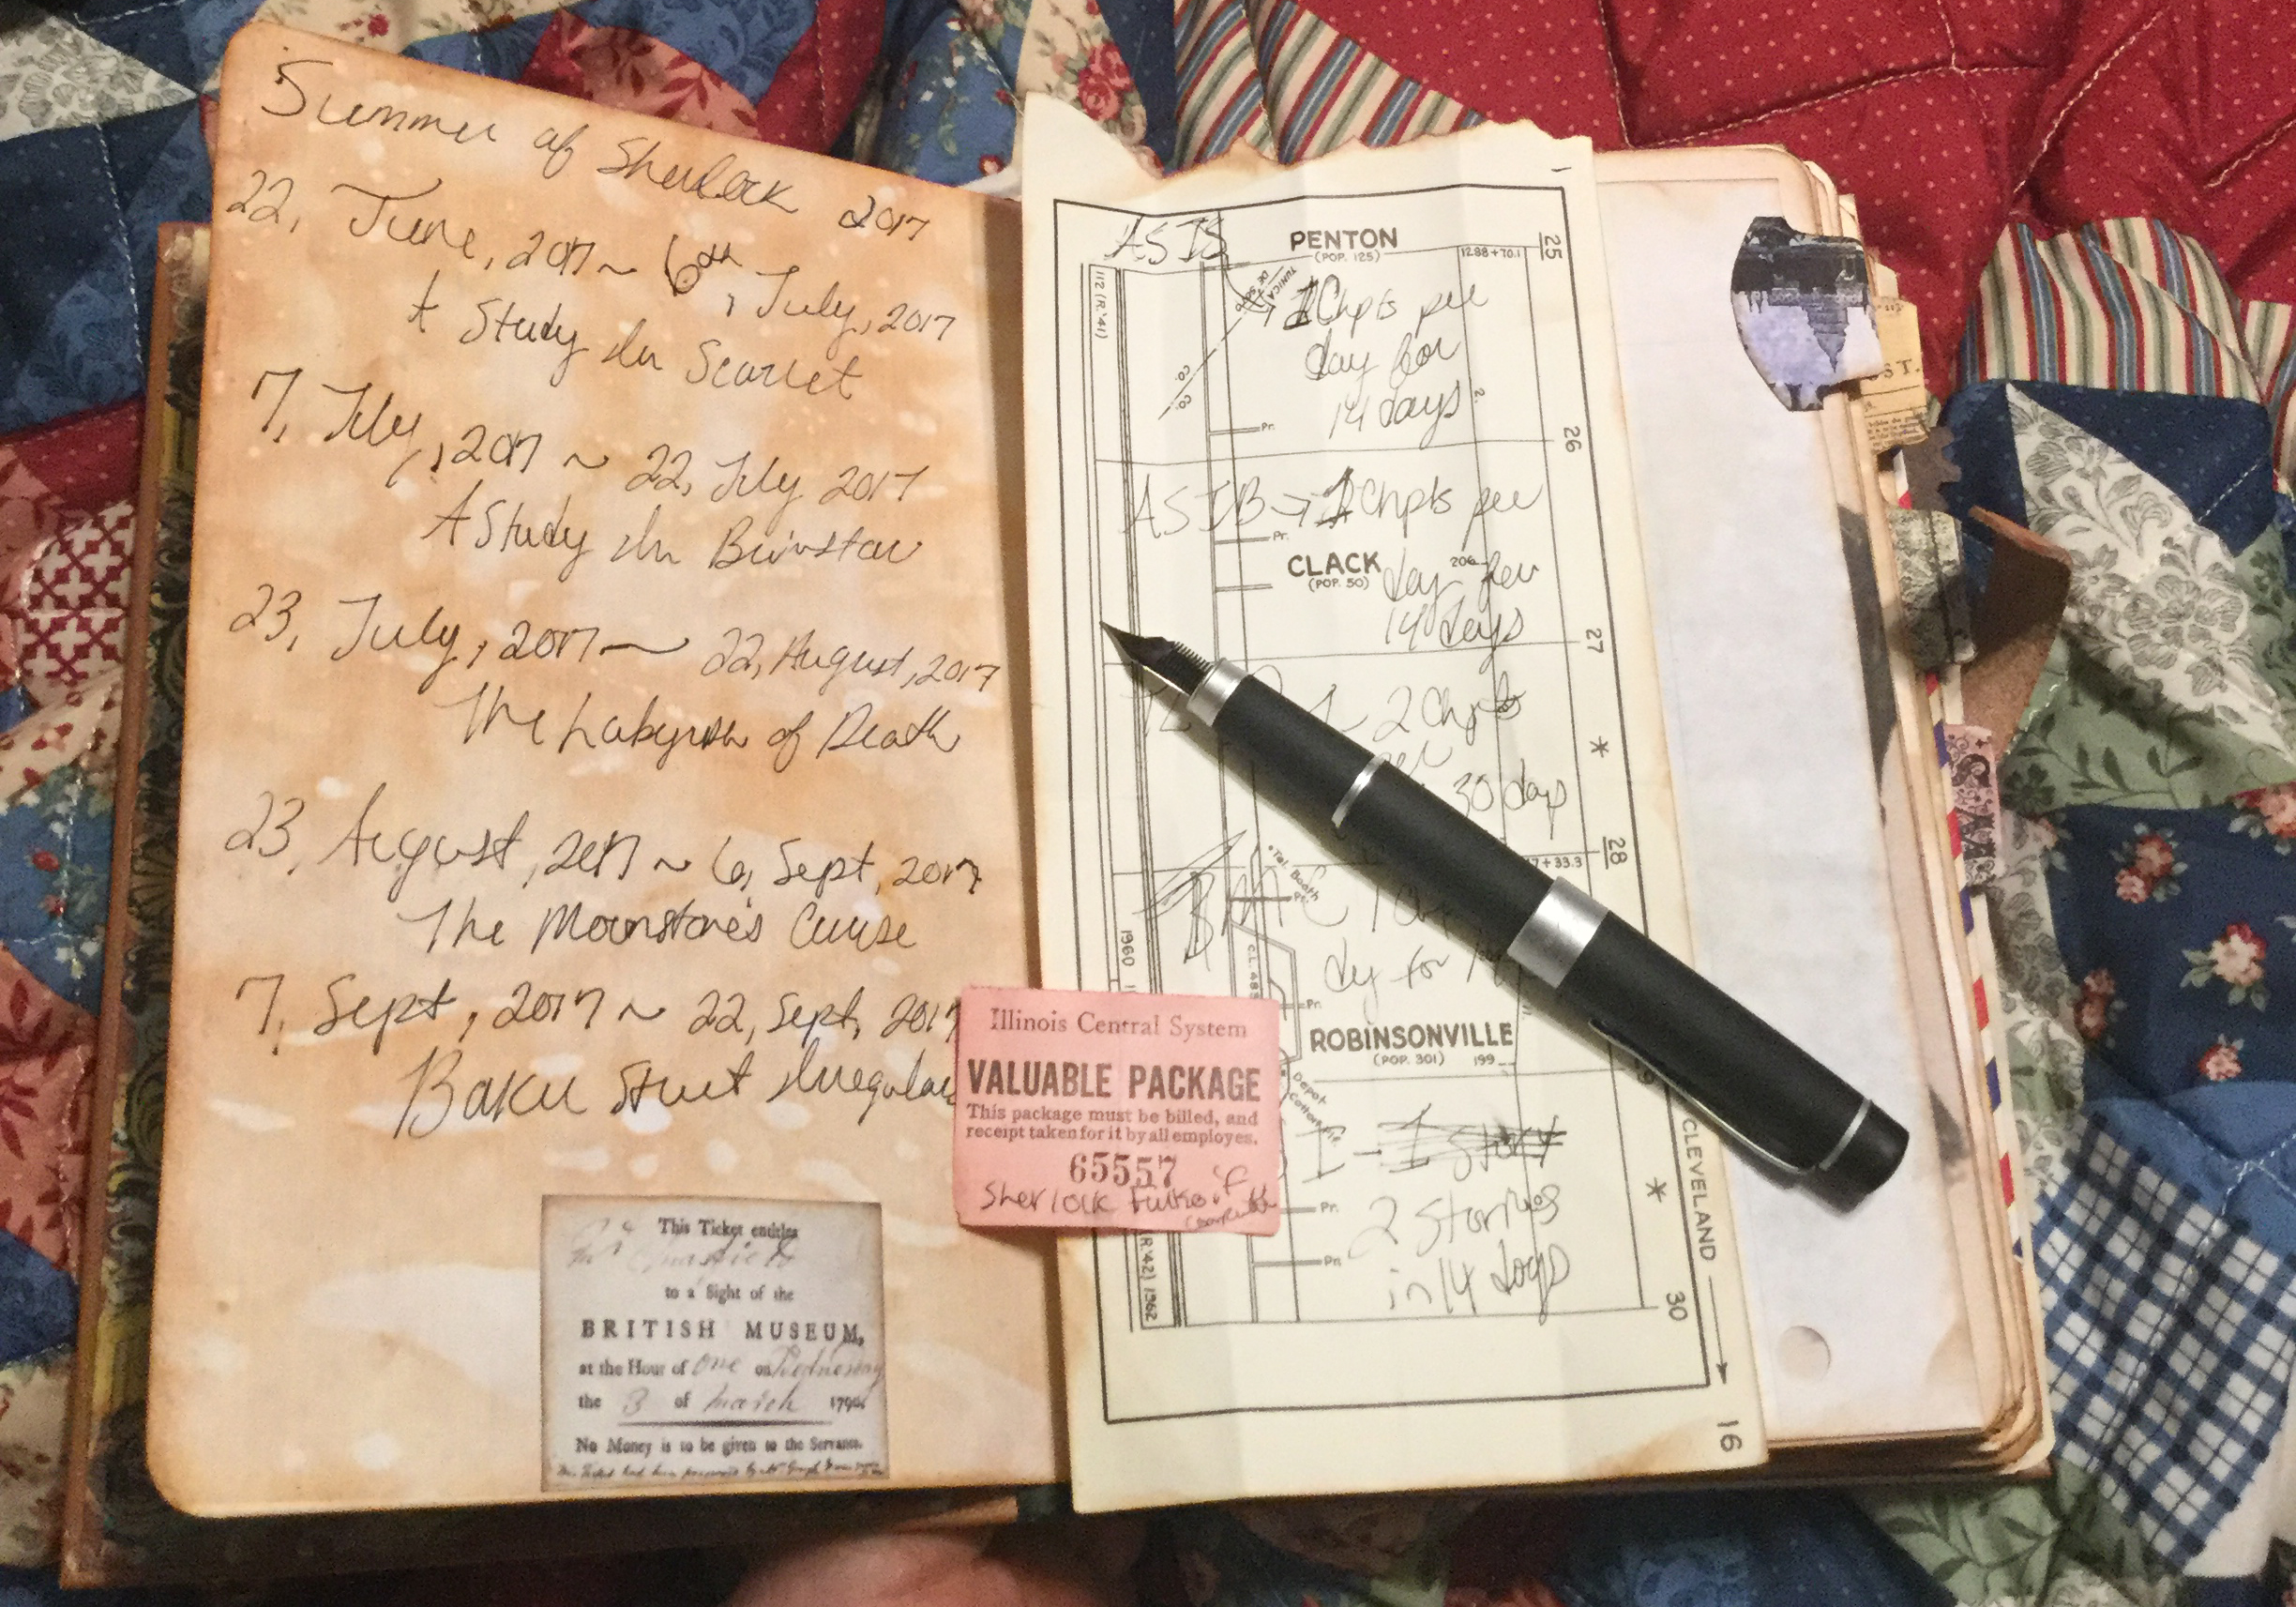 Summer of Sherlock 2017
22, June, 2017 ~ 6th, July, 2017
A Study In Scarlet
7, July, 2017 ~ 22, July 2017
A Study In Brimstone
23, July, 2017 ~ 22, August, 2017
The Labyrinth of Death
23, August, 2017 ~ 6, Sept, 2017
The Moonstone's Curse
7, Sept, 2017 ~ 22, Sept, 2017
Baker Street Irregulars
This Ticket entitles
to a Sight of the
BRITISH MUSEUM,
at the Hour of one on Wednesday
the 3 of March 1790.
No Money is to be given to the Servants.
Illinois Central System
VALUABLE PACKAGE
This package must be billed, and
receipt taken for it by all employes.
65557
Sherlock
ASIS
PENTON
(POP. 125)
1288+70.1
25
TUNICA
DE SOTO
CO.
CO.
112 (R.'41)
Chpts per
day for
14 days
2.
Pr.
26
ASIB → 1 Chpts per
Pr.
CLACK
(POP. 50)
206
day for
14 days
27
1-2 Chpts
per
30 days
*
28
7+33.3
Tel. Booth
Pr.
BMC
dy for
1960
C.I. 485
Pr.
ROBINSONVILLE
(POP. 301) 199
Depot
I - 1 Story
Pr.
2 Stories
in 14 days
Pr.
*
CLEVELAND
(R.'42) 1962
30
16
ST.